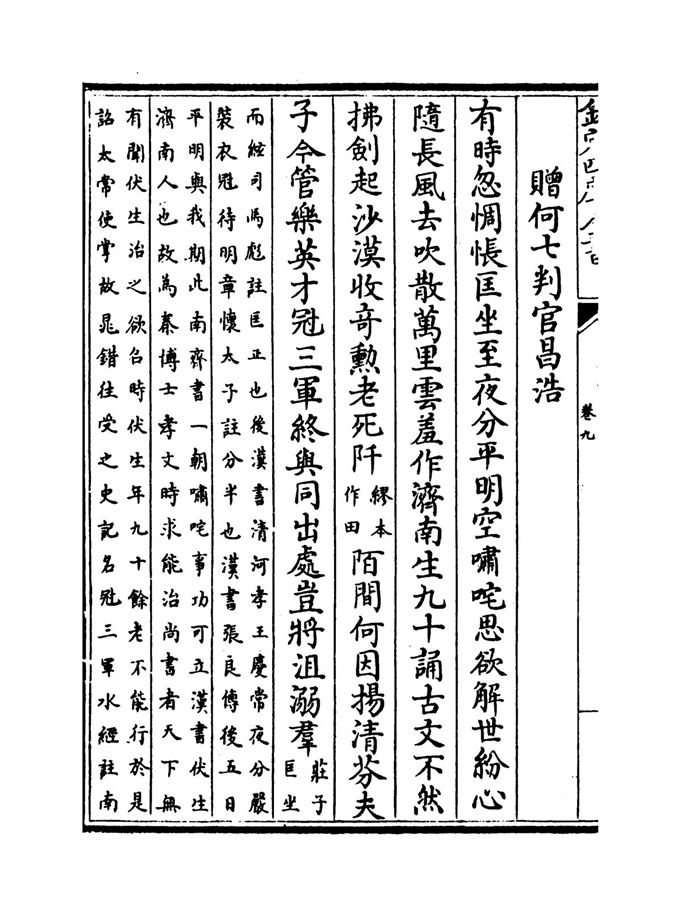 欽定四庫全書
卷九
贈何七判官昌浩
有時忽惆悵匡坐至夜分平明空嘯咤思欲解世紛心
隨長風去吹散萬里雲羞作濟南生九十誦古文不然
拂劍起沙漠收竒勲老死阡繆本作田陌間何因揚清芬夫
子今管樂英才冠三軍終與同出處豈將沮溺羣莊子匡坐
而絃司馬彪註匡正也後漢書清河孝王慶常夜分嚴
裝衣冠待明章懷太子註分半也漢書張良傳後五日
平明與我期此南齊書一朝嘯咤事功可立漢書伏生
濟南人也故為秦博士孝文時求能治尚書者天下無
有聞伏生治之欲召時伏生年九十餘老不能行於是
詔太常使掌故晁錯往受之史記名冠三軍水經註南